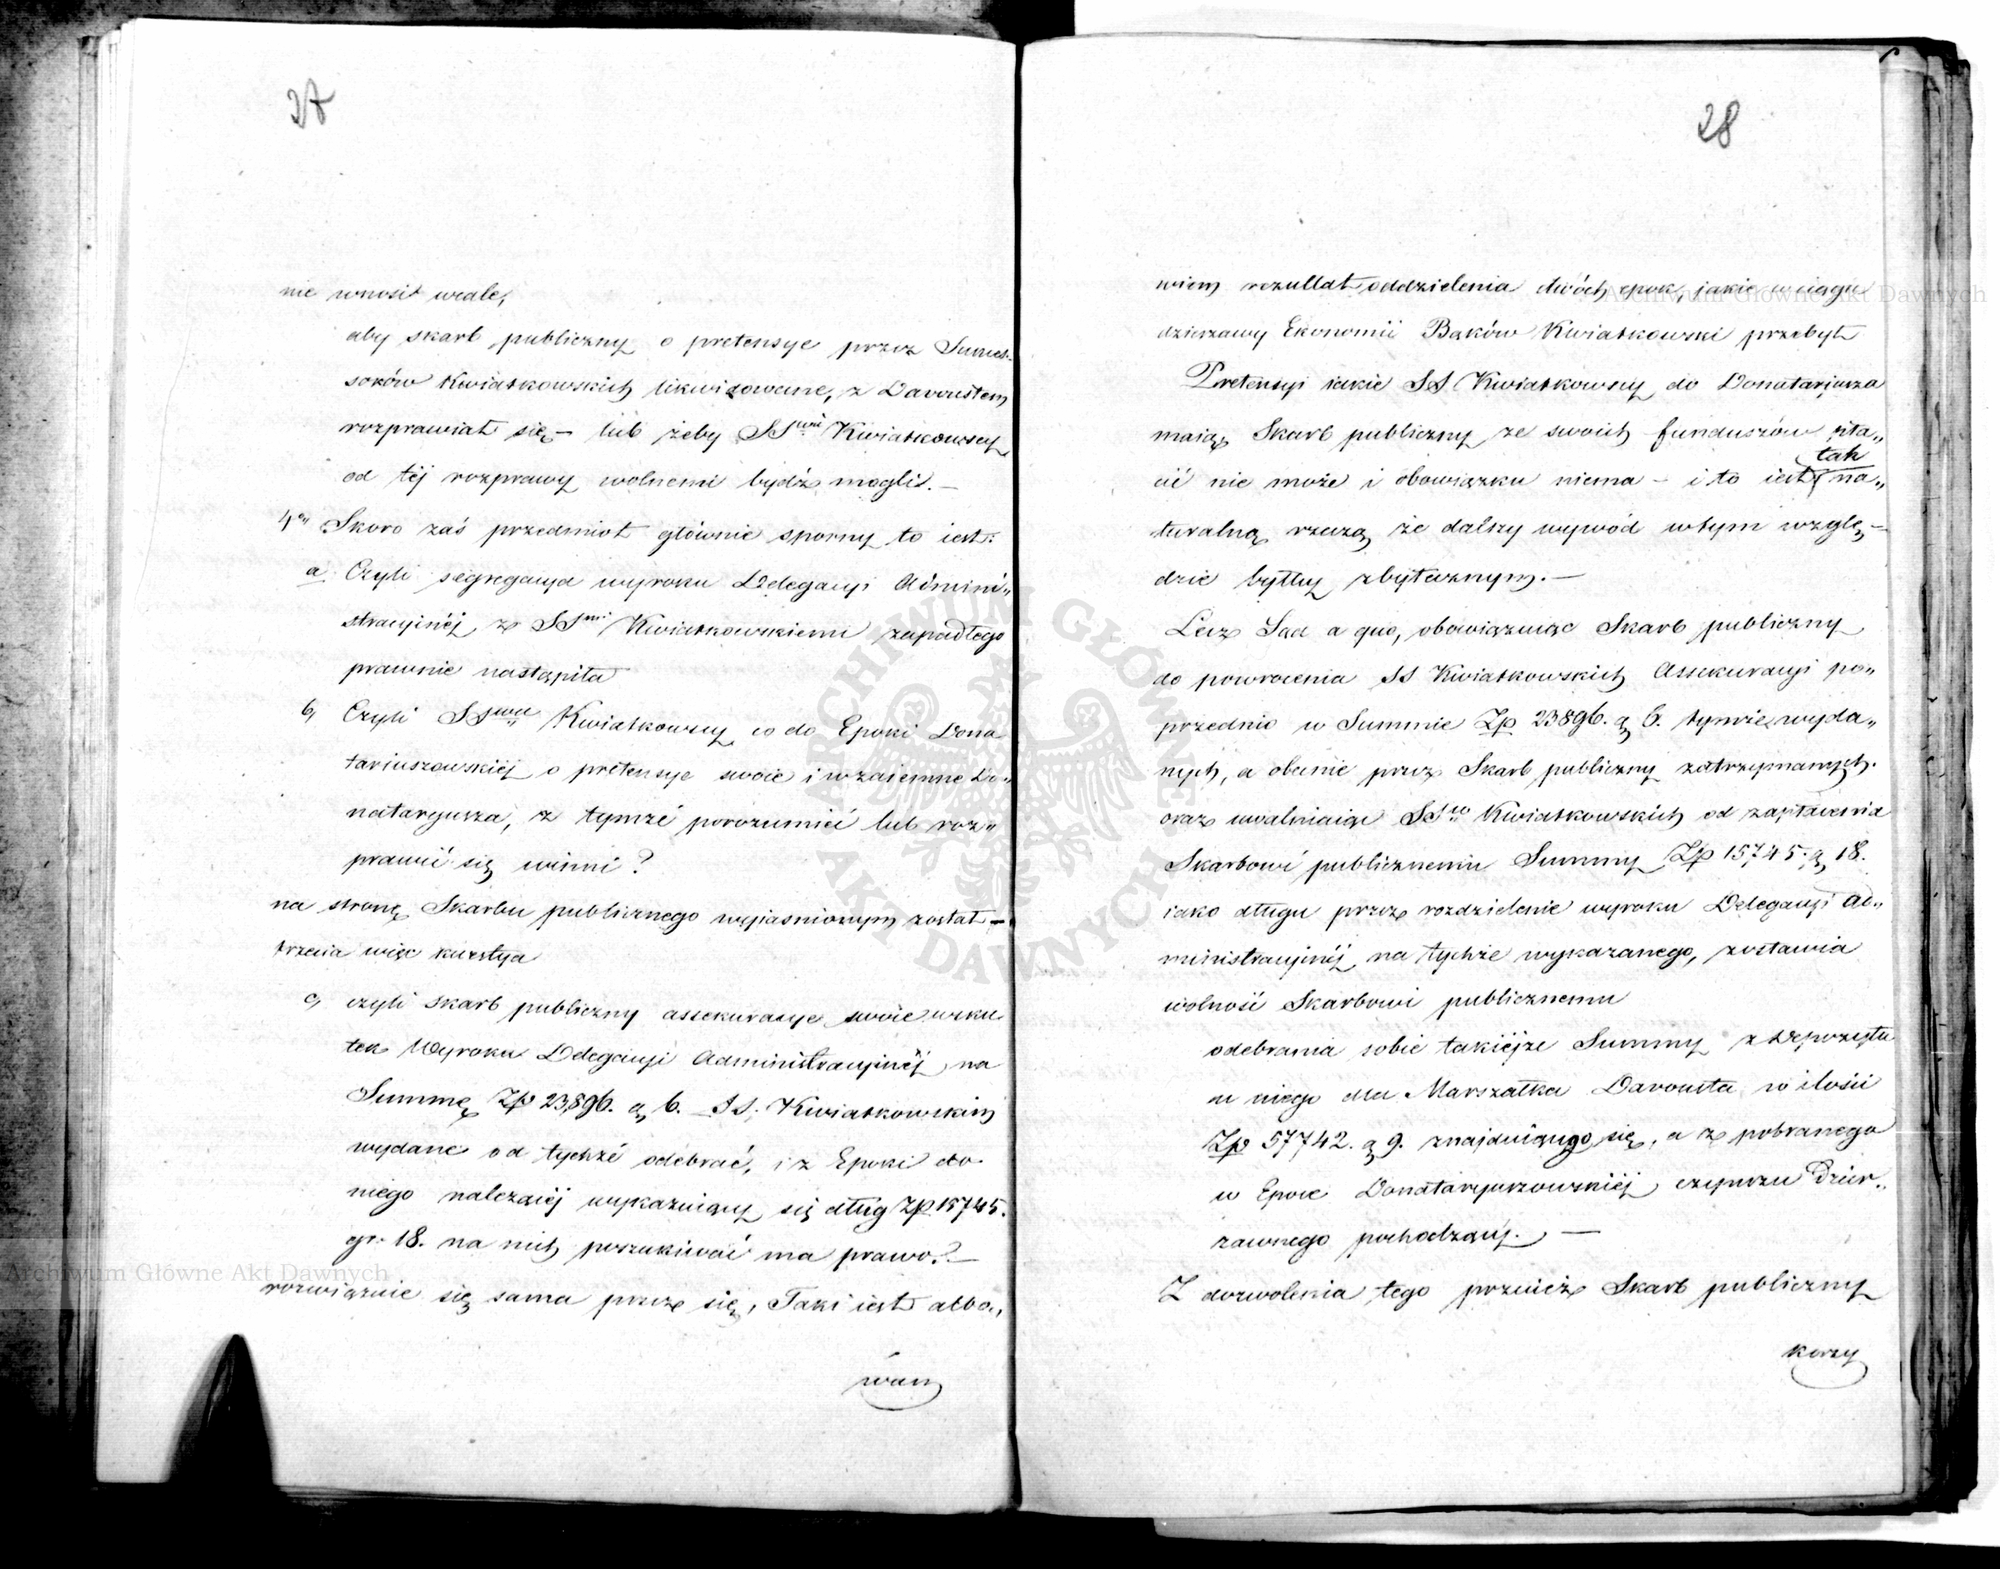 27
nie wnosił wcale,
aby skarb publiczny o pretensye przez Sukces-
sorów Kwiatkowskich likwidowane, z Davoustem
rozprawiał się – lub żeby SSrowie Kwiatkowscy
od téj rozprawy wolnemi bydź mogli. –
4o Skoro zaś przedmiot głównie sporny to iest:
a Czyli segregacya wyroku Delegacyi Admini„
stracyinéj z SSmi Kwiatkowskiemi zapadłego
prawnie nastąpiła
b, Czyli SSrowie Kwiatkowscy co do Epoki Dona
taryuszowskiéj o pretensye swoie i wzaiemne Do„
nataryusza, z tymże porozumieć lub roz„
prawić się winni?
na stronę Skarbu publicznego wyjaśnionym został –
trzecia więc kwestya
c, czyli skarb publiczny assekuracye swoie wsku
tek Wyroku Delegacyi Administracyinéj na
Summę Zp 23,896. g 6. SS. Kwiatkowskim
wydane od tychże odebrać, i z Epoki do
niego należącéj wykazuiący się dług Zp 15745.
gr. 18. na nich poszukiwać ma prawo? –
rozwiązuie się sama przez się, Taki iest albo„
wiem
28
wiem rezultat oddzielenia dwóch epok, jakie w ciągu
dzierżawy Ekonomii Bąków Kwiatkowski przebył
Pretensyi iakie SS Kwiatkowscy do Donataryusza
maią, Skarb publiczny ze swoich funduszów pła„
cić nie może i obowiązku niema – i to iest tak na„
turalną rzeczą, że dalszy wywód w tym wzglę–
dzie byłby zbytecznym. –
Lecz Sąd a quo, obowiązuiąc Skarb publiczny
do powrócenia SS Kwiatkowskich Assekuracyi po„
przednio w Summie Zp 23896. g 6. tymże wyda„
nych, a obecnie przez Skarb publiczny zatrzymanych.
oraz uwalniaiąc SSrów Kwiatkowskich od zapłacenia
Skarbowi publicznemu Summy Zp 15,745. g 18.
iako długu przez rozdzielenie wyroku Delegacyi Ad„
ministracyinéj na tychże wykazanego, zostawia
wolność Skarbowi publicznemu
odebrania sobie takiéjże Summy z Depozytu
u niego dla Marszałka Davousta w ilości
Zp 57742. g 9. znajduiącego się, a z pobranego
w Epoce Donataryuszowskiéj czynszu Dzier„
żawnego pochodzący. –
Z dozwolenia tego przecież Skarb publiczny
korzy
Archiwum Główne Akt Dawnych
Archiwum Główne Akt Dawnych
ARCHIWUM GŁÓWNE AKT DAWNYCH